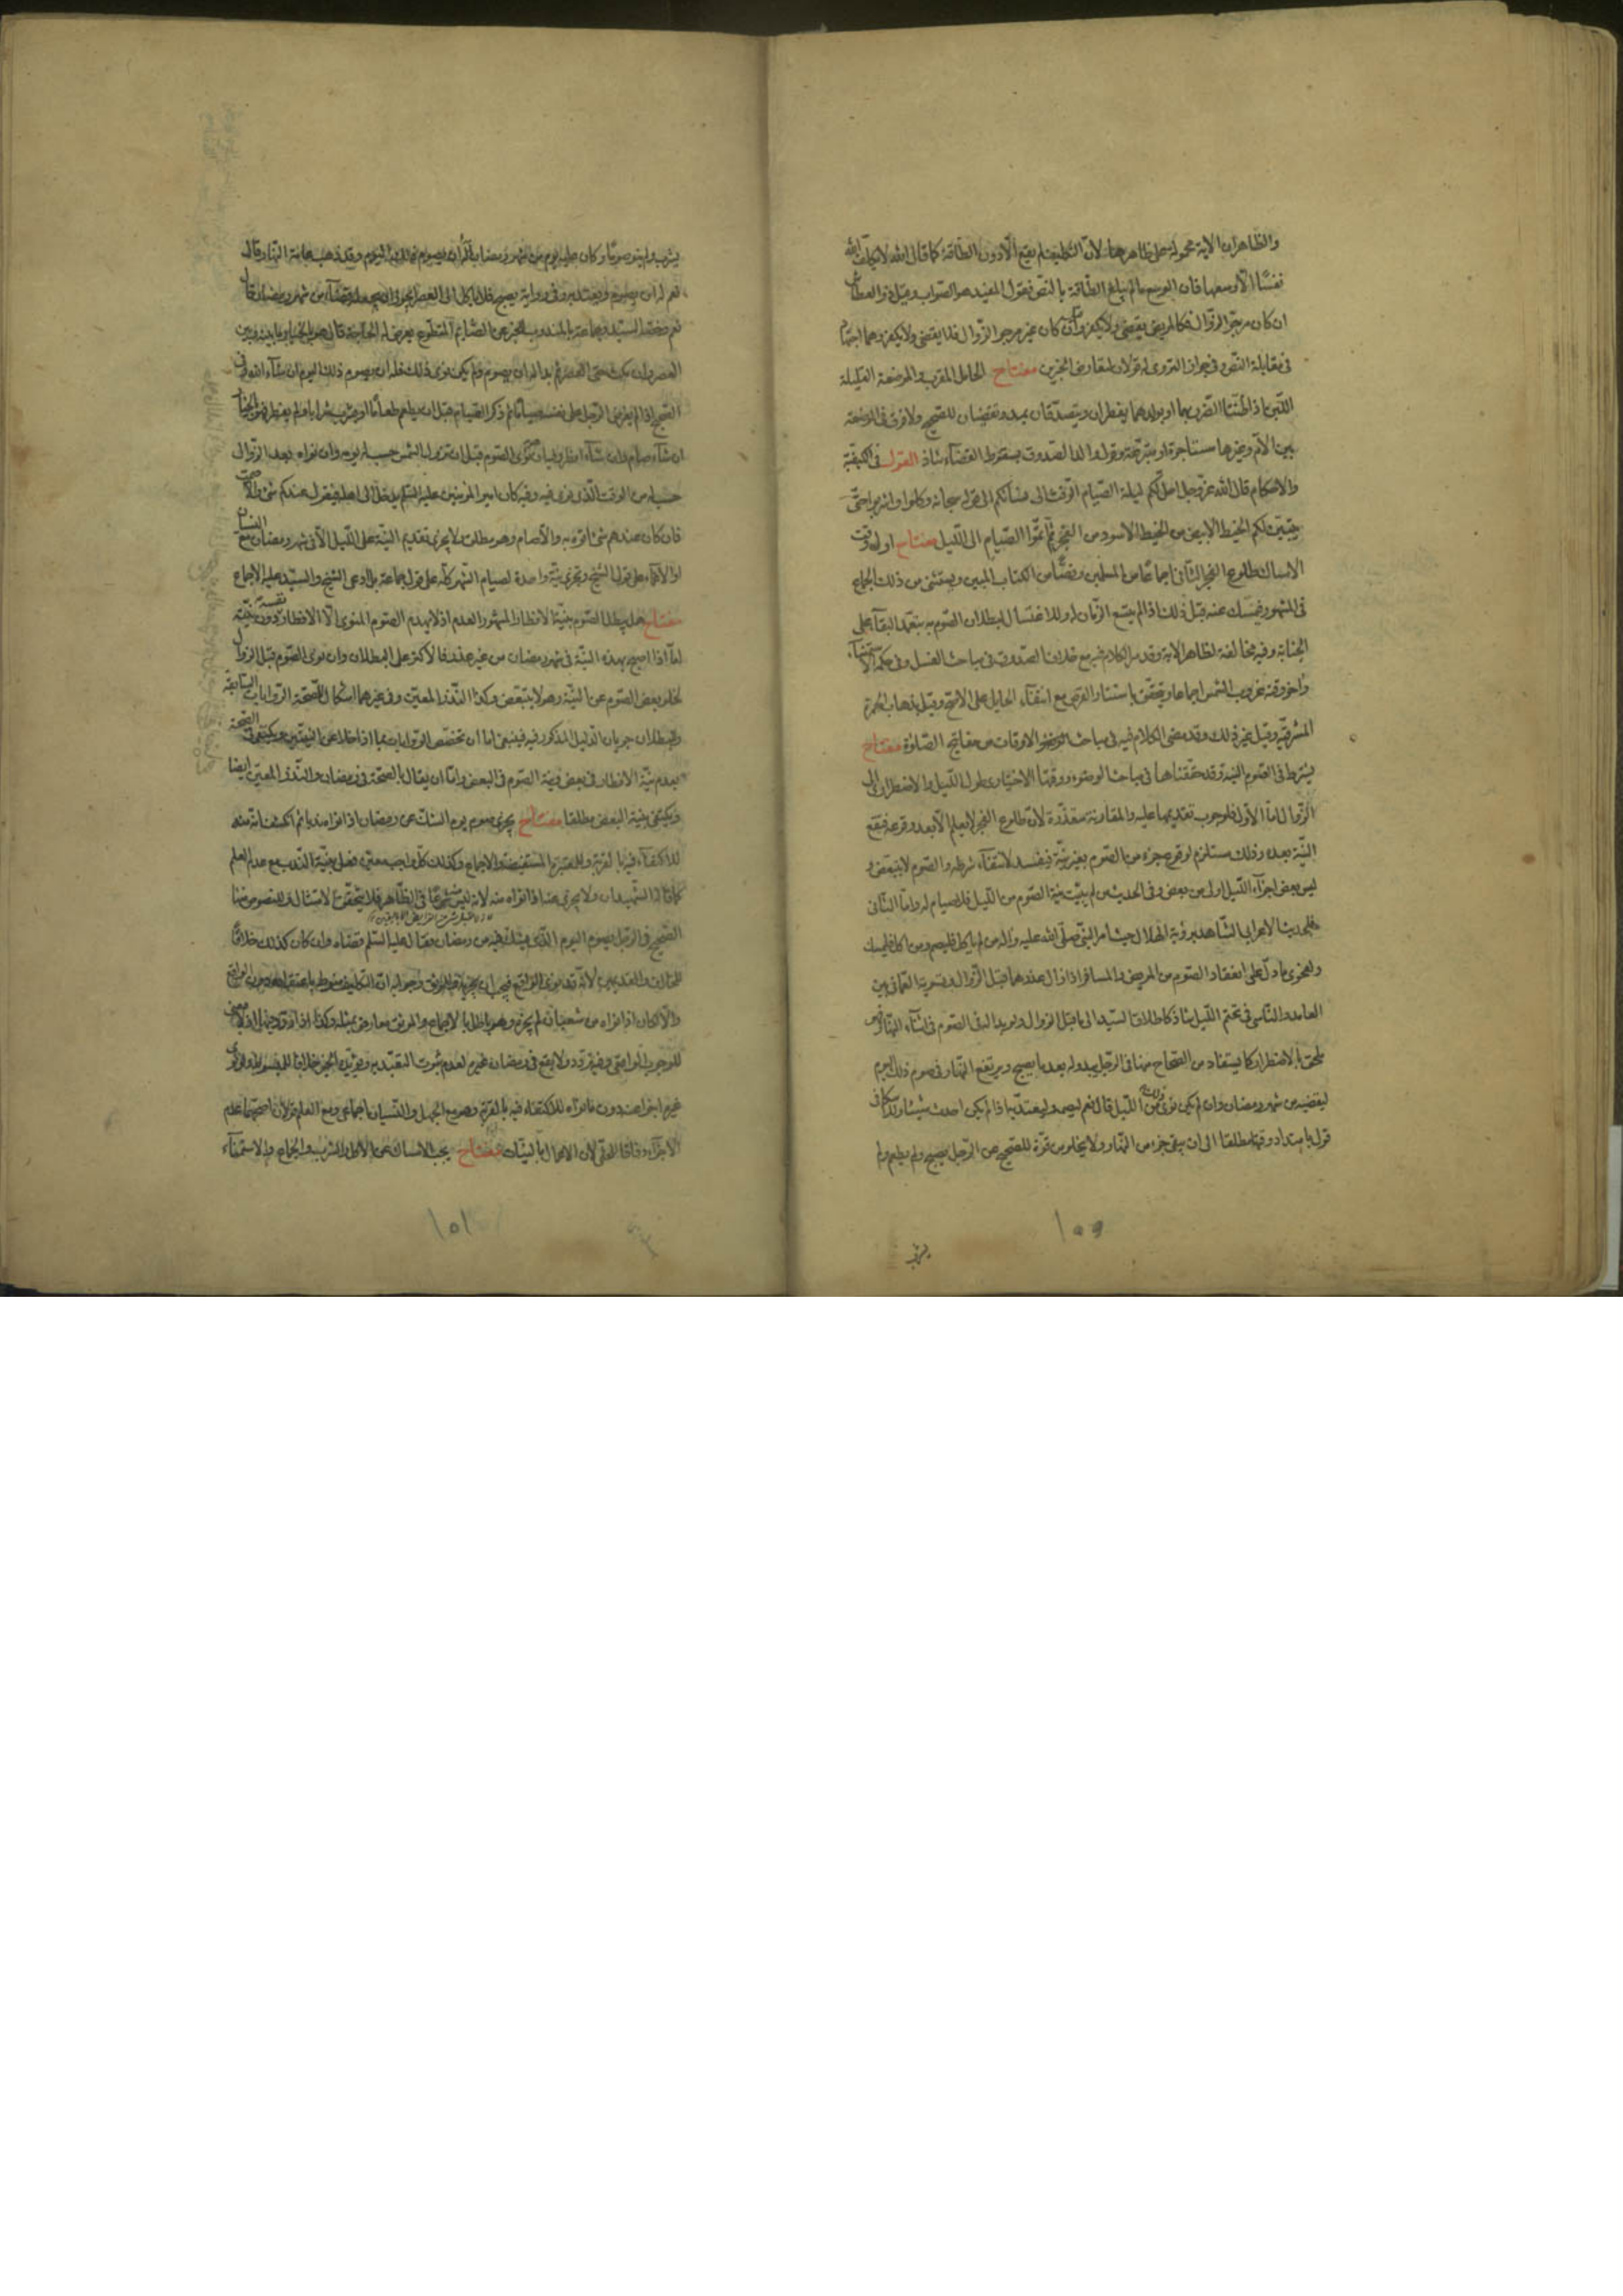 والظاهر ان الاية محمولة على ظاهرها لانّ التكليف لم يقع الّا دون الطاقة كما قال الله لا يكلّف الله
نفسًا الّا وسعها فان الوسع ما لم يبلغ الطاقة بالنص فقول المفيد هو الصواب وقيل ذو العطاش
ان كان مرجوّ الزوال فكالمريض يقضي ولا يكفر وان كان غير مرجو الزوال فلا يقضي ولا يكفر وهما اجتهاد
في مقابلة النصّ وفي جواز التروي له قولان لتعارض الخبرين مفتاح الحامل المقرب والمرضعة القليلة
اللّبن اذا ظنّتا الضرر بهما او بولدهما يفطران ويتصدّقان بمد وتقضيان للصحيح ولا فرق في المرضعة
بين الامّ وغيرها مستاجرة او متبرّعة وقول والد الصدوق بسقوط القضاء شاذ القول في الكيفية
والاحكام قال الله عزّ وجل احلّ لكم ليلة الصّيام الرّفث الى نسائكم الى قوله سبحانه وكلوا واشربوا حتّى
يتبيّن لكم الخيط الابيض من الخيط الاسود من الفجر ثمّ اتمّوا الصّيام الى اللّيل مفتاح اول وقت
الامساك طلوع الفجر الثاني اجماعًا من المسلمين ونصًّا من الكتاب المبين ويستثنى من ذلك الجماع
في المشهور فيمسك عنه قبل ذلك اذا لم يتسع الزمان له وللاغتسال لبطلان الصوم به بتعمّد البقاء على
الجنابة وفيه مخالفة لظاهر الاية وقد مر الكلام فيه مع خلاف الصدوق في مباحث الغسل وفي حكمه الاستمناء
واخر وقته غروب الشمس اجماعا ويتحقق باستتار القرص مع انتفاء الحايل على الاصح وقيل بذهاب الحمرة
المشرقية وقيل غير ذلك وقد مضى الكلام فيه في مباحث الاوقات من مفاتيح الصلوة مفتاح
يشترط في الصوم النية وقد حققناها في مباحث الوضوء ووقتها الاختياري طول اللّيل والاضطراري الى
الزوال امّا الاول فلوجوب تقديمها عليه والمقارنة متعذّرة لانّ طلوع الفجر لا يعلم الّا بعد وقوعه فتقع
النيّة بعده وذلك مستلزم لوقوع جزء من الصوم بغير نيّة فيفسد لانتفاء شرطه والصوم لا يتبعض و
ليس بعض اجزاء اللّيل اولى من بعض وفي الحديث من لم يبيّت نية الصّوم من اللّيل فلا صيام له وامّا الثاني
فلحديث الاعرابي الشاهد برؤية الهلال حيث امر النبيّ صلّى الله عليه واله من لم ياكل فليصم ومن اكل فليمسك
ولفحوى ما دلّ على انعقاد الصوم من المريض والمسافر اذا زال عذرهما قبل الزّوال وتسوية العمّاني بين
العامد والنّاسي في تحتم اللّيل شاذ كاطلاق السيّد الى ما قبل الزوال ولو بدا له في الصوم في اثناء النهار فهو
ملحق بالاضطرار كما يستفاد من الصّحاح منها في الرّجل يبدو له بعد ما يصبح ويرتفع النهار في صوم ذلك اليوم
ليقضيه من شهر رمضان وان لم يكن نوى ذلك من اللّيل قال نعم ليصمه وليعتدّ به اذا لم يكن احدث شيئا
قول بامتداد وقتها مطلقا الى ان يبقى جزء من النّهار ولا يخلو من قوّة للصّحيح عن الرّجل يصبح ولم يطعم ولم
يشرب
١٥٥
يشرب ولم ينو صومًا وكان عليه يوم من شهر رمضان اله ان يصوم ذلك اليوم وقد ذهب عامة النهار قال
نعم له ان يصوم ويعتد به وفي رواية يصبح فلا ياكل الى العصر ايجوز ان يجعله قضاء من شهر رمضان قال
نعم وخصّه السيّد وجماعة بالمندوب للخبر عن الصّائم المتطوّع يعرض له الحاجة قال هو بالخيار ما بينه وبين
العصر وان مكث حتى العصر ثم بدا له ان يصوم ولم يكن نوى ذلك فله ان يصوم ذلك اليوم ان شاء الله وفي
الصحيح اذا لم يفرض الرّجل على نفسه صيامًا ثم ذكر الصّيام قبل ان يطعم طعامًا او يشرب شرابا ولم يفطر فهو بالخيار
ان شاء صام وان شاء افطر وان نوى الصّوم قبل ان تزول الشمس حسب له يومه وان نواه بعد الزوال
حسب له من الوقت الّذي نوى فيه وفيه كان امير المؤمنين عليه السّلم يدخل الى اهله فيقول عندكم شيء والّا صمت
فان كان عندهم شيء اتوه به والّا صام وهو مطلق ولا يجوز تقديم النيّة على اللّيل الّا في شهر رمضان مع النسيان
او الاغماء على قول الشيخ وتجزي نيّة واحدة لصيام الشهر كلّه على قول جماعة بل ادعى الشيخ والسيّد عليه الاجماع
مفتاح هل يبطل الصّوم بنيّة الافطار المشهور العدم اذ لا يهدم الصوم المنوي الّا الافطار دون نيّته نفسه
امّا اذا اصبح بهذه النيّة في شهر رمضان من غير عذر فالاكثر على البطلان وان نوى الصّوم قبل الزوال
لخلو بعض الصّوم عن النيّة وهو لا يتبعض وكذا النّذر المعين وفي غيرهما اشكال للصحّة الرّوايات السّابقة
وللبطلان جريان الدّليل المذكور فيه فينبغي امّا ان تخصّص الرّوايات بما اذا خلا عن النيتين ويكتفى في الصّحة
بعدم نيّة الافطار في بعض ونية الصّوم في البعض وامّا ان يقال بالصحّة في رمضان والنّذر المعيّن ايضا
ويكتفى بنية البعض مطلقا مفتاح يجزي صوم يوم الشكّ عن رمضان اذا نواه ندبا ثم انكشف انه منه
للاكتفاء فيه بالقربة وللمعتبرة المستفيضة والاجماع وكذلك كلّ واجب معيّن فعل بنيّة النّدب مع عدم العلم
كما قاله الشهيدان ولا يجزي عنه اذا نواه منه لانه ليس مشروعًا في الظّاهر فلا يتحقق به الامتثال وللنصوص منها
الصّحيح في الرّجل يصوم اليوم الّذي يشك فيه من رمضان فقال عليه السّلم قضاه وان كان كذلك خلافًا
للخلاف والقديمين لانّه قد نوى الواقع فيجب ان يجزيه وللموثق وجوابه انّ التكليف منوط باعتقاده دون الواقع
والّا لكان اذا نواه من شعبان لم يجزه وهو باطل بالاجماع والموثق معارض بمثله وكذا اذا
للوجوب الواقعي وفيه تردد ولا يقع في رمضان غيره لعدم ثبوت التعبّد به ويؤيّده الخبر خلافا للمبسوط ولو نوى
غيره اجزأ عنه دون ما نواه للاكتفاء فيه بالقربة وهو مع الجهل والنّسيان اجماعي ومع العلم قولان اصحّهما عدم
الاجزاء وفاقا للحلّي لانّ الاعمال بالنيّات مفتاح يجب الامساك عن الاكل والشرب والجماع والاستمناء
١٥١